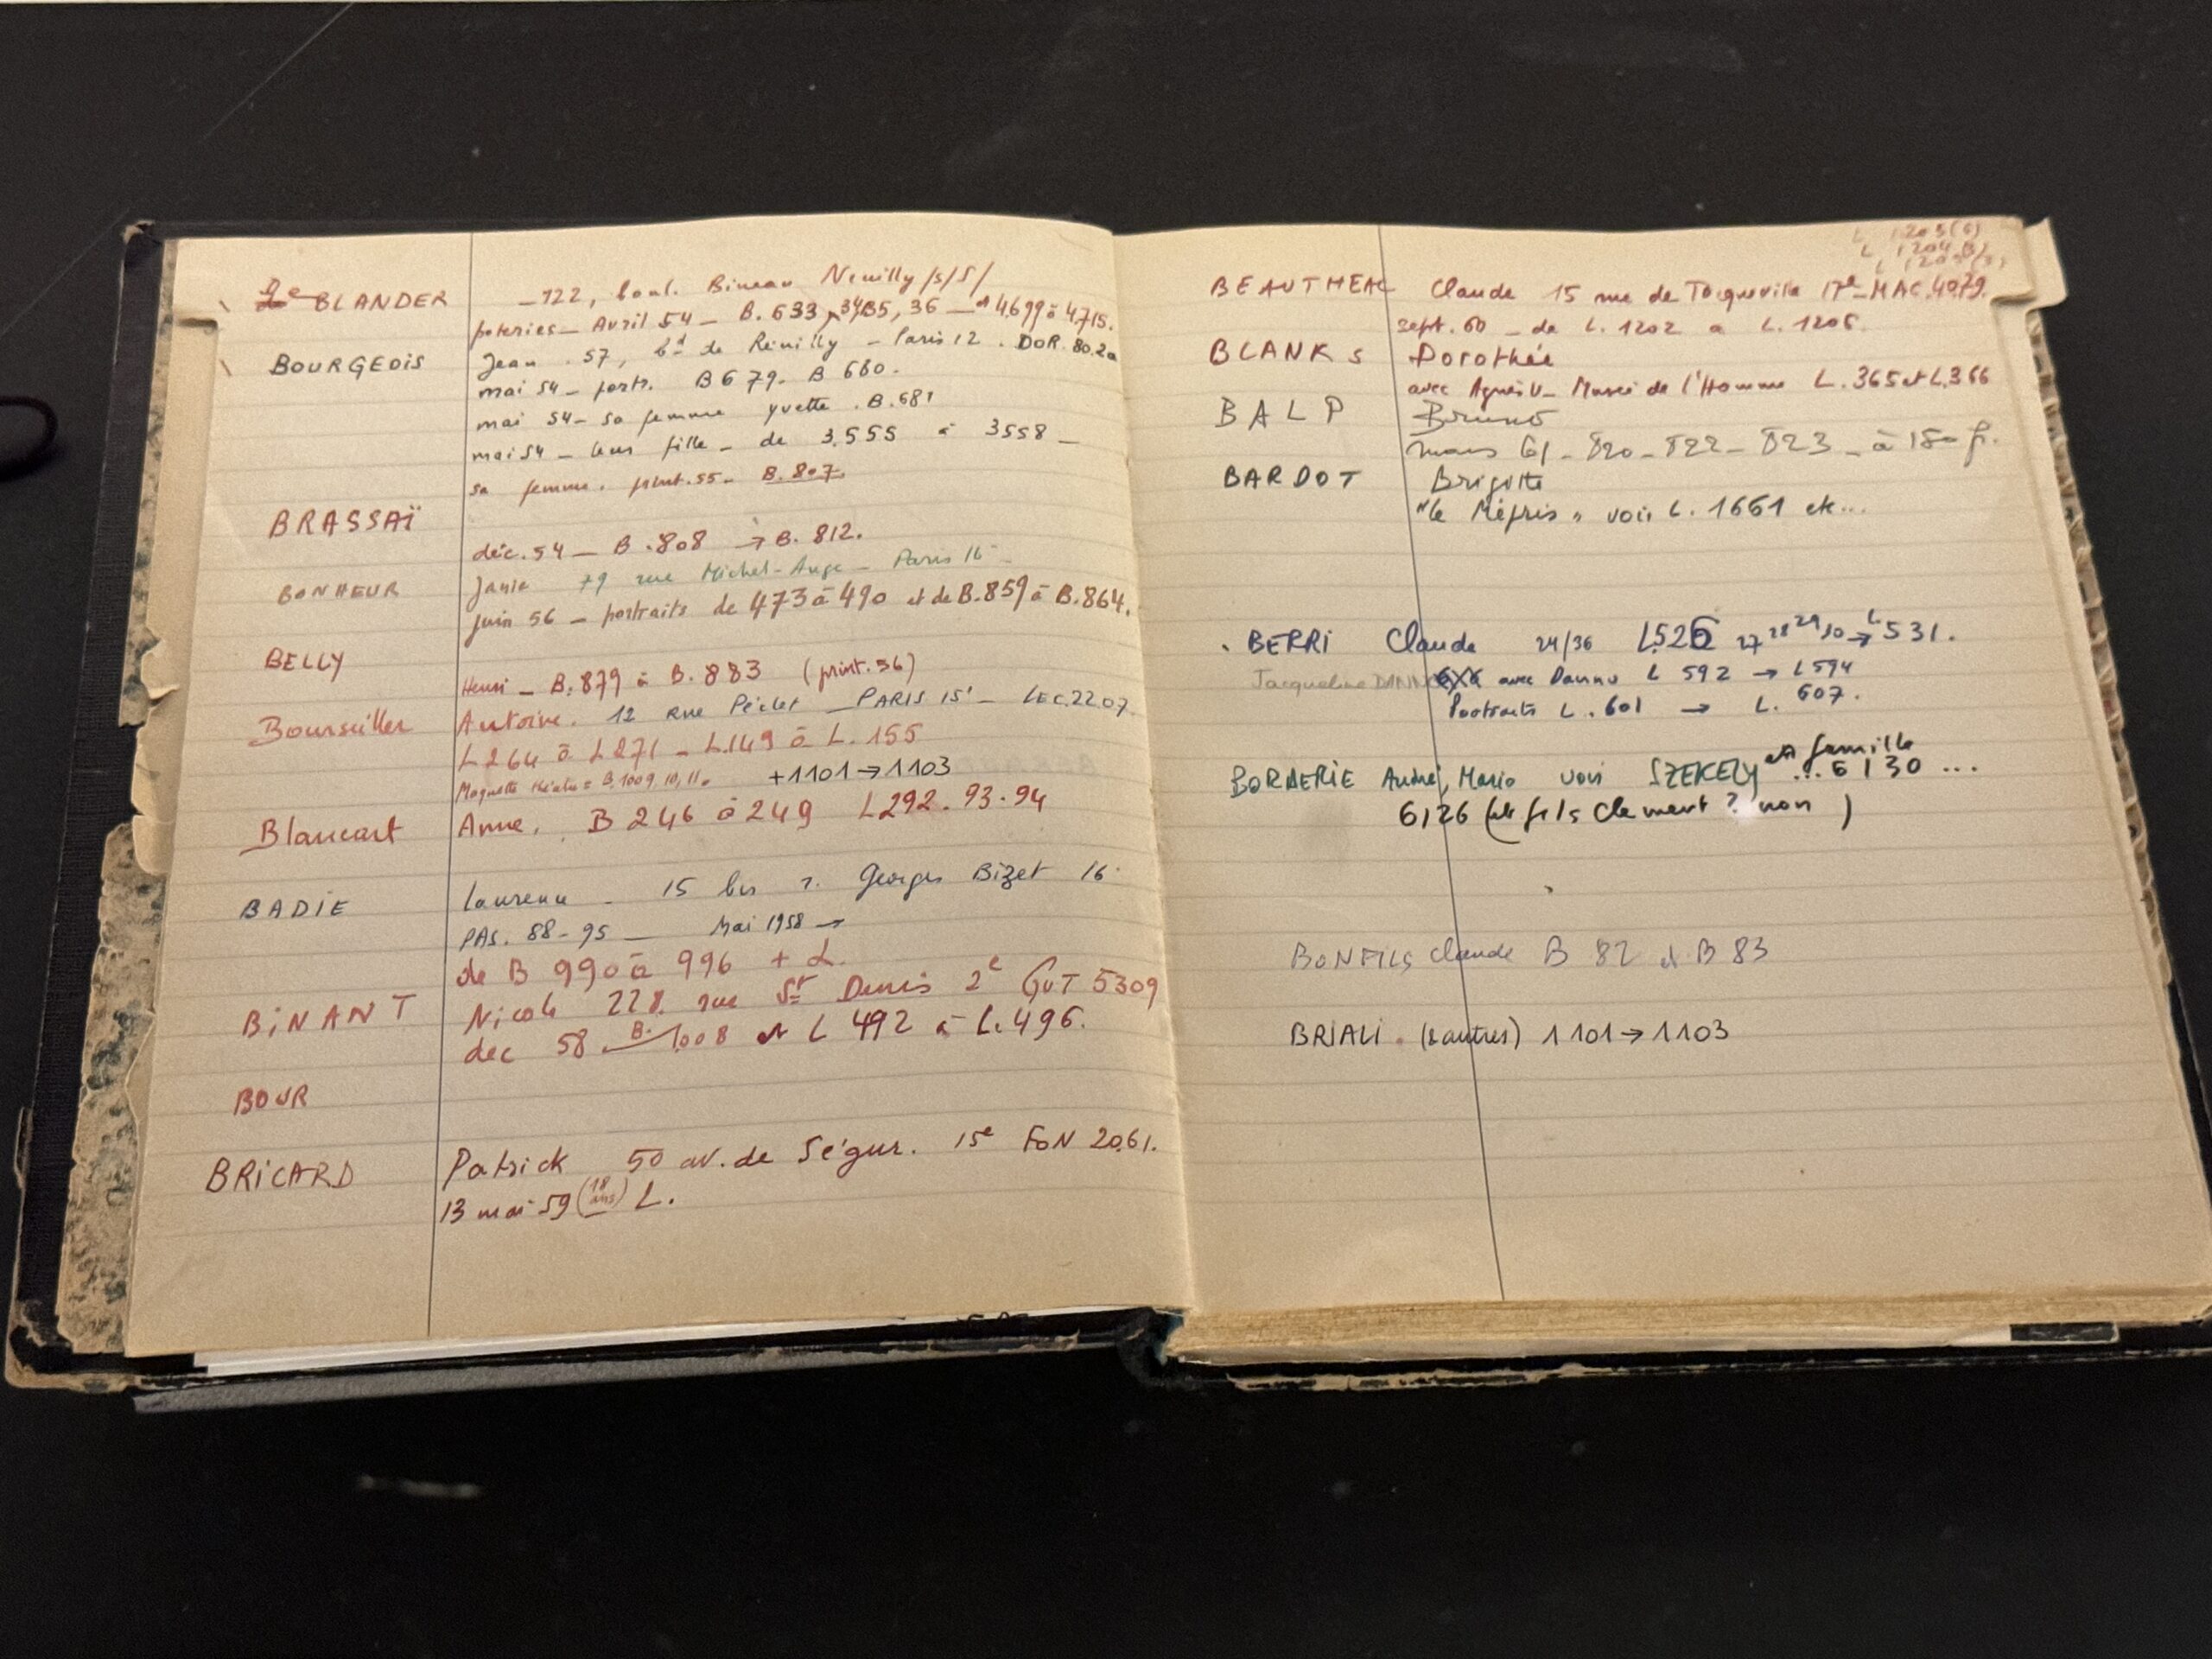 BLANDER _122, boul. Bineau Neuilly/s/S/
poteries_ Avril 54 _ B. 633, 34, 35, 36 _ et 4.699 à 4.715.
BOURGEOIS Jean . 57, bd de Reuilly _ Paris 12 . DOR. 80.20
mai 54_ ports. B 679. B 680.
mai 54_ sa femme yvette . B.681
mai 54 _ leur fille _ de 3.555 à 3558 _
sa femme. print.55_ B.807.
BRASSAÏ
déc. 54 _ B .808 → B. 812.
BONHEUR 79 rue Michel-Ange _ Paris 16
juin 56 _ portraits de 473 à 490 et de B.859 à B.864.
BELLY
Henri _ B.879 à B.883 (print.56)
Bourseiller Antoine. 12 Rue Péclet _ PARIS 15' _ LEC.22.07.
L 264 à L 271 _ L.149 à L. 155
Maquette théatre = B.1009, 10, 11. +1101→1103
Blancart Anne. B 246 à 249 L292.93.94
BADIE Laurence _ 15 bis r. Georges Bizet 16
PAS. 88-95 _ Mai 1958 →
de B 990 à 996 + L.
BINANT Nicole 228 rue St Denis 2e GUT 5309
dec 58 _ B. 1008 et L 492 à L. 496.
BOUR
BRICARD Patrick 50 av. de Ségur. 15e FON 20.61.
13 mai 59 (18 ans) L.
L 1203(6)
L 1204
L 1205
Claude 15 rue de Tocqueville 17e _ MAC.40.79.
sept. 60 _ de L. 1202 à L. 1206.
BLANKS Dorothée
avec Agnès V_ Musée de l'Homme L.365 et L.366
BALP Bruno
mars 61 _ 820 _ 822 _ 823 _ à 180 f.
BARDOT Brigitte
"Le Mépris" voir L. 1661 etc...
. BERRI Claude 24/36 L526 27 28 29 30 → L 531.
Jacqueline 6X6 avec Danno L 592 → L594
Portraits L.601 → L. 607.
BORDERIE André, Mario voir SZEKELY et famille ... 6130 ...
6126 (et fils Clement ? non )
BONFILS Claude B 82 et B 83
BRIALI . (& autres) 1101→1103